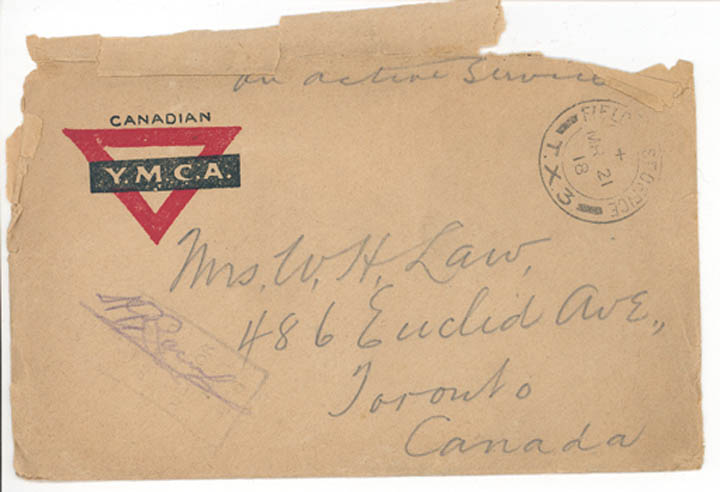 on active service
CANADIAN
Y.M.C.A.
FIELD POST OFFICE
X
MR 21
18
T.X.3
Mrs. W. H. Law,
486 Euclid Ave.,
Toronto
Canada